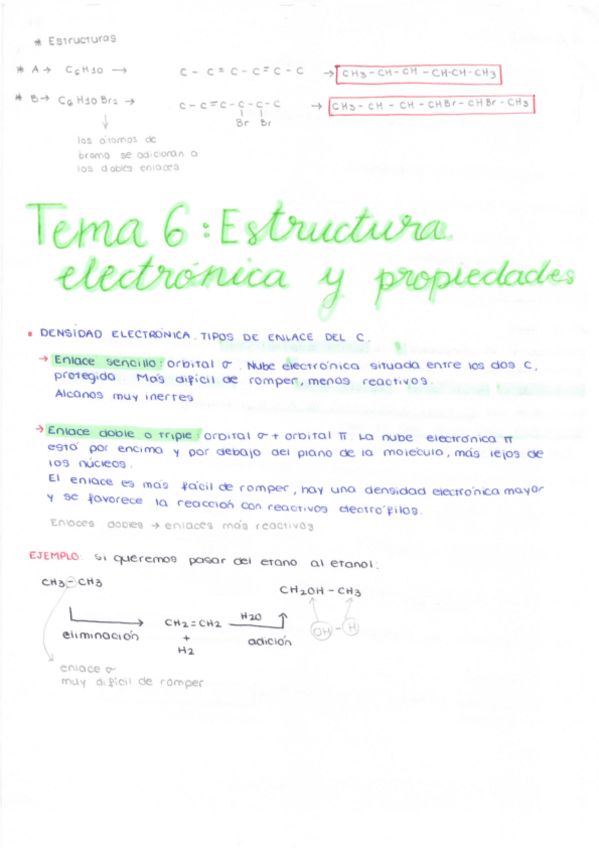 * Estructuras
* A → C6H10 → C - C = C - C = C - C → CH3 - CH - CH - CH-CH-CH3
* B → C6H10Br2 → C - C = C - C - C - C → CH3 - CH - CH - CHBr - CHBr - CH3
Br Br
los átomos de
bromo se adicionan a
los dobles enlaces
Tema 6: Estructura
electrónica y propiedades
• DENSIDAD ELECTRÓNICA. TIPOS DE ENLACE DEL C.
→ Enlace sencillo: orbital σ. Nube electrónica situada entre los dos C,
protegida. Más difícil de romper, menos reactivos.
Alcanos muy inertes
→ Enlace doble o triple: orbital σ + orbital π. La nube electrónica π
está por encima y por debajo del plano de la molécula, más lejos de
los núcleos.
El enlace es más fácil de romper, hay una densidad electrónica mayor
y se favorece la reacción con reactivos electrófilos.
Enlaces dobles → enlaces más reactivos
EJEMPLO: si queremos pasar del etano al etanol:
CH3 - CH3
CH2OH - CH3
eliminación
CH2 = CH2
+
H2
H2O
adición
OH - H
enlace σ
muy difícil de romper